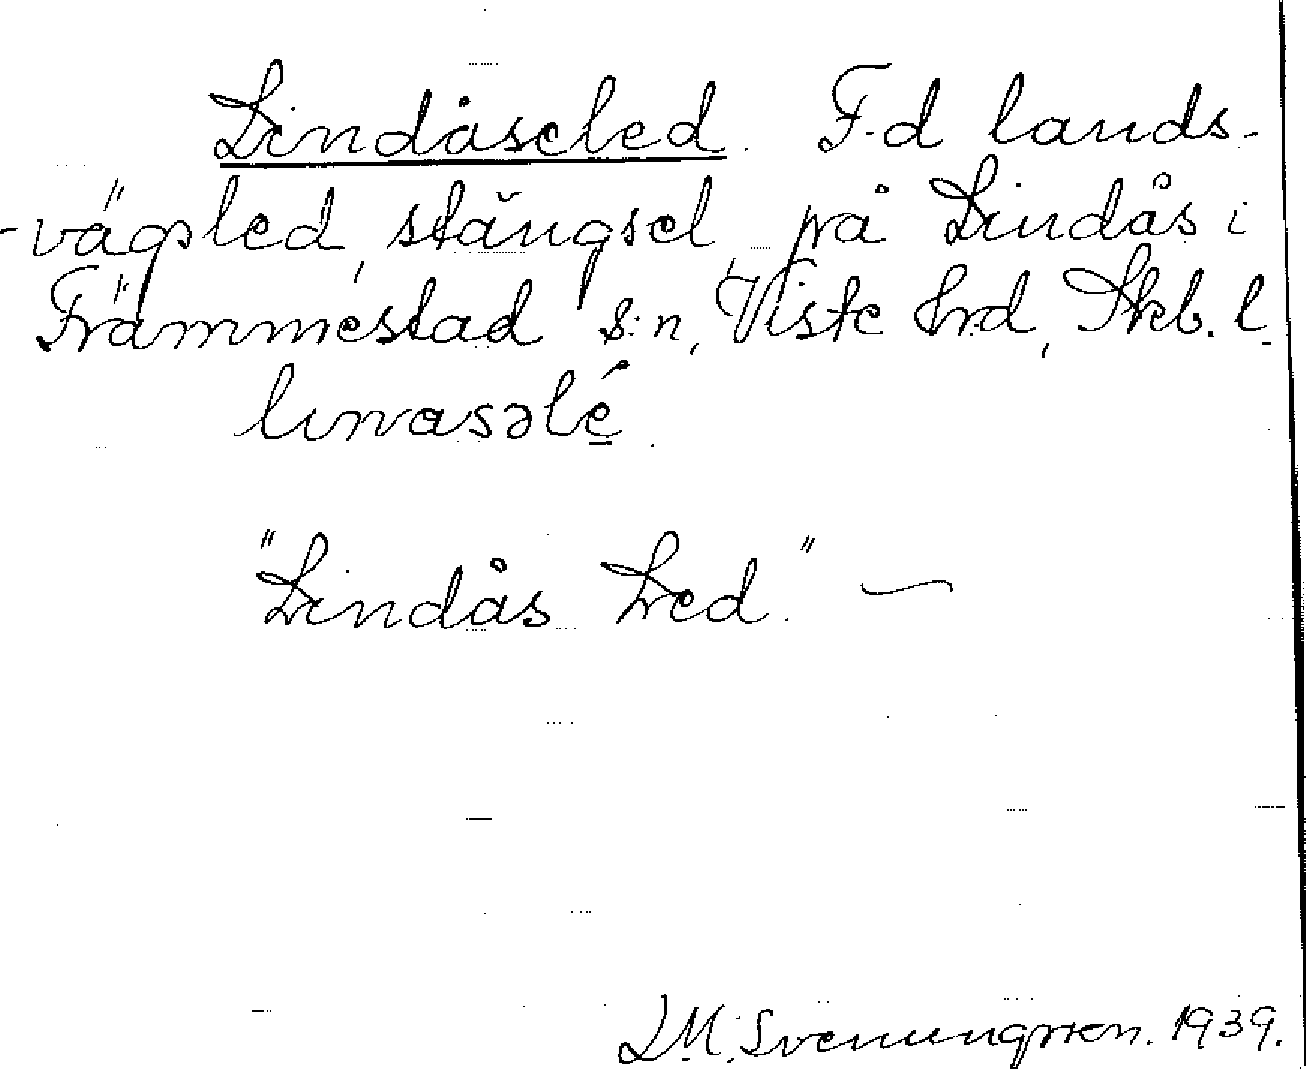 Lindåseled. F.d lands-
-vägsled, stängsel, på Lindås i
Främmestad s:n, Viste hrd, Skb. l.
linnasəlé.
"Lindås Led." —
L.M. Svenungsson. 1939.